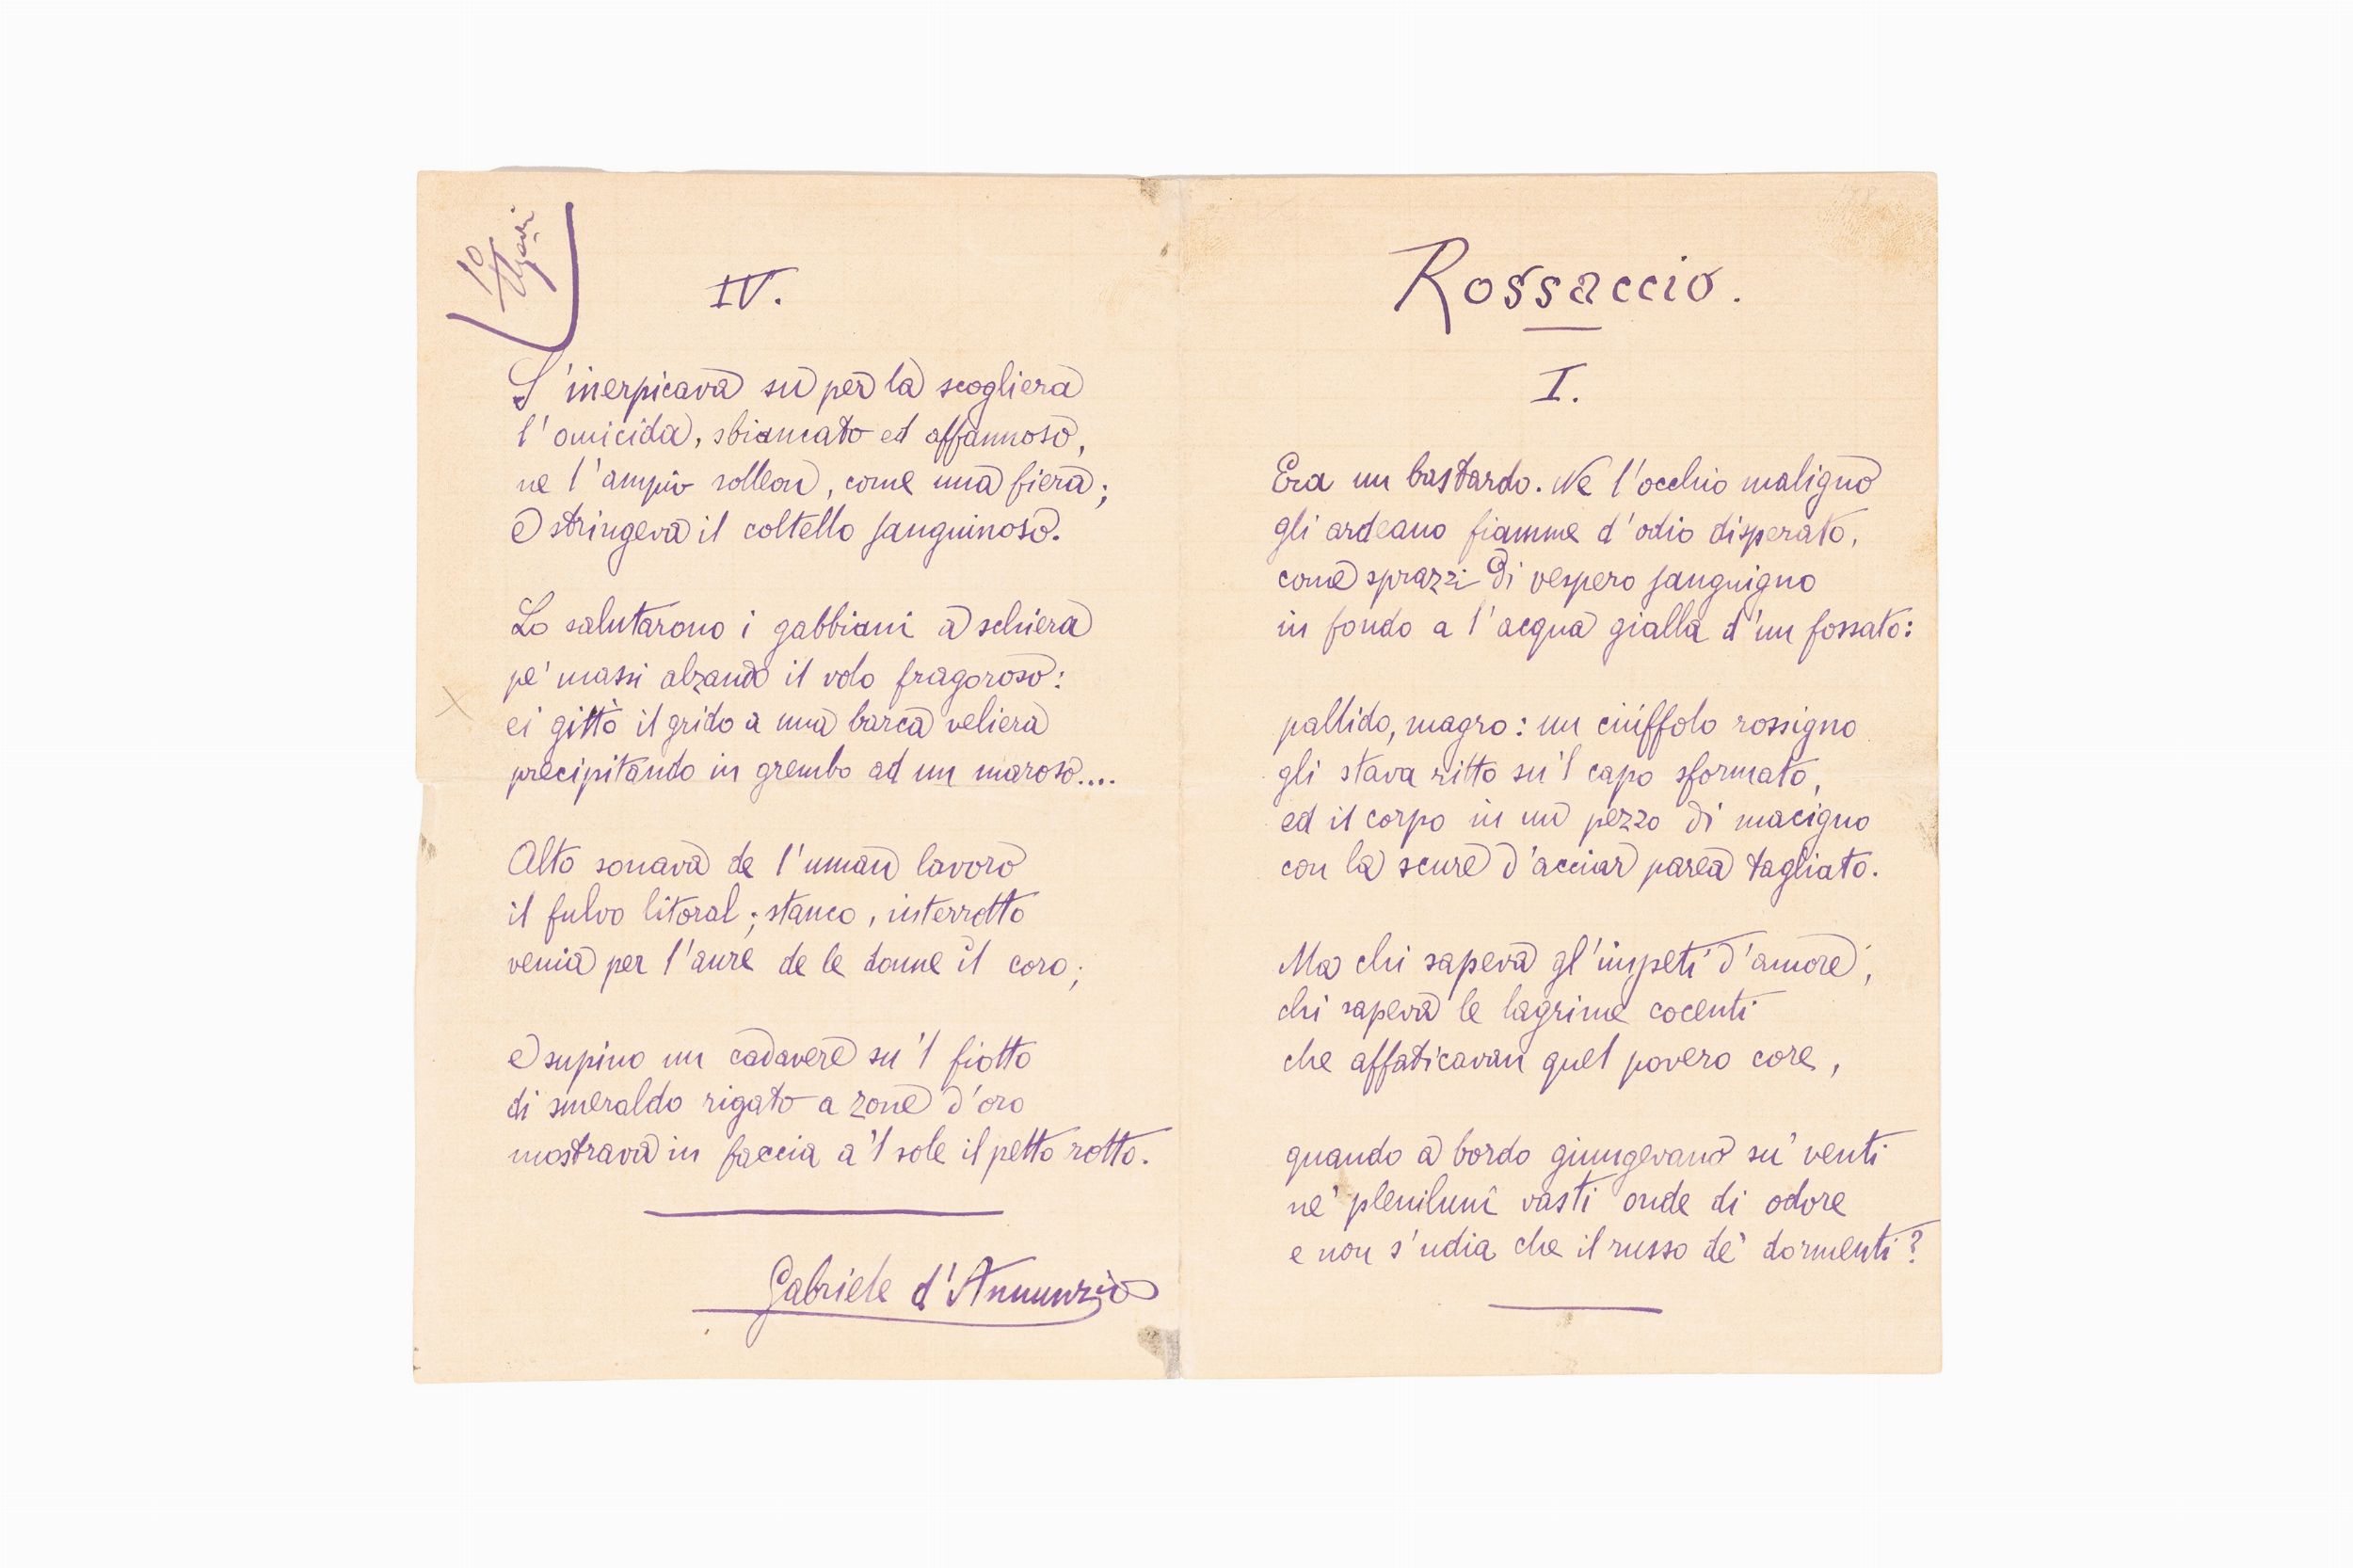 IV.
S'inerpicava su per la scogliera
l'omicida, sbiancato ed affannoso,
ne l'ampio solleon, come una fiera;
e stringeva il coltello sanguinoso.
Lo salutarono i gabbiani a schiera
pe' massi alzando il volo fragoroso:
ei gittò il grido a una barca veliera
precipitando in grembo ad un maroso....
Alto sonava de l'uman lavoro
il fulvo litoral; stanco, interrotto
venia per l'aure de le donne il coro;
e supino un cadavere su 'l fiotto
di smeraldo rigato a zone d'oro
mostrava in faccia a 'l sole il petto rotto.
Gabriele d'Annunzio
Rossaccio.
I.
Era un bastardo. Ne l'occhio maligno
gli ardeano fiamme d'odio disperato,
come sprazzi di vespero sanguigno
in fondo a l'acqua gialla d'un fossato:
pallido, magro: un ciuffolo rossigno
gli stava ritto su 'l capo sformato,
ed il corpo in un pezzo di macigno
con la scure d'acciar parea tagliato.
Ma chi sapeva gl'impeti d'amore,
chi sapeva le lagrime cocenti
che affaticavan quel povero core,
quando a bordo giungevano su' venti
ne' plenilunî vasti onde di odore
e non s'udia che il russo de' dormenti?